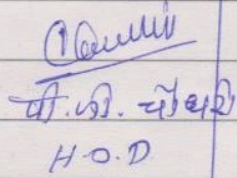 पी.जी. चौधरी
H.O.D